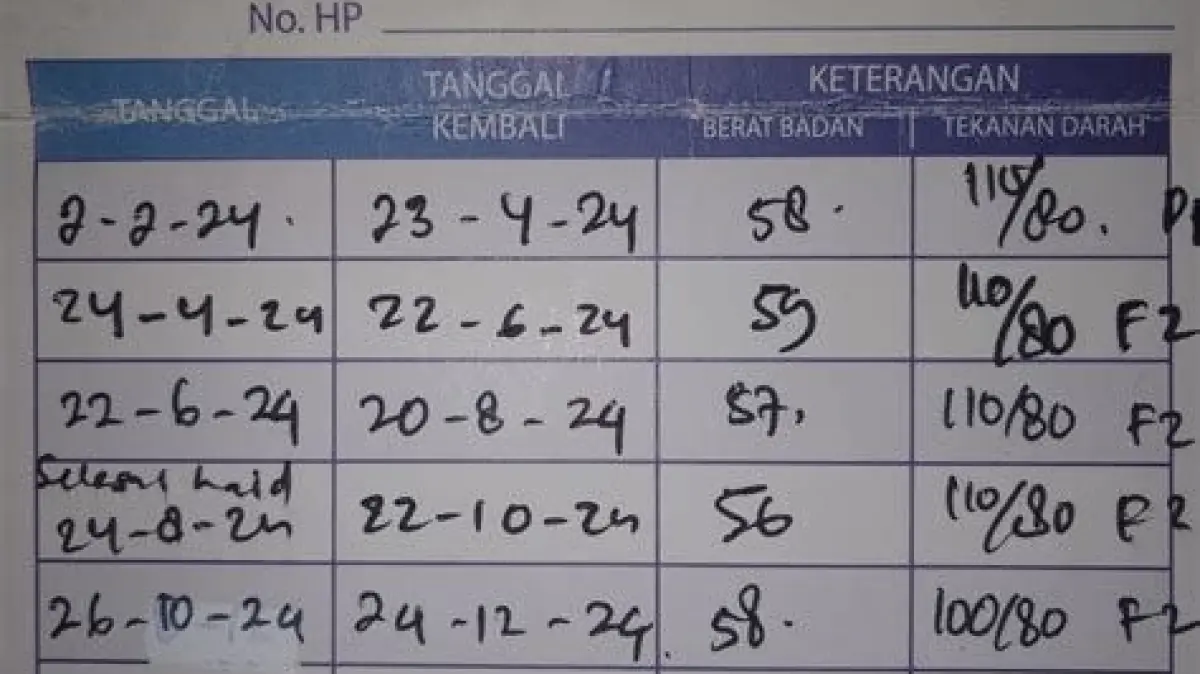 No. HP
TANGGAL TANGGAL KEMBALI KETERANGAN
BERAT BADAN TEKANAN DARAH
2-2-24. 23-4-24 58. 110/80.
24-4-24 22-6-24 59 110/80 F2
22-6-24 20-8-24 57, 110/80 F2
Selesai haid
24-8-24 22-10-24 56 110/80 F2
26-10-24 24-12-24. 58. 100/80 F2